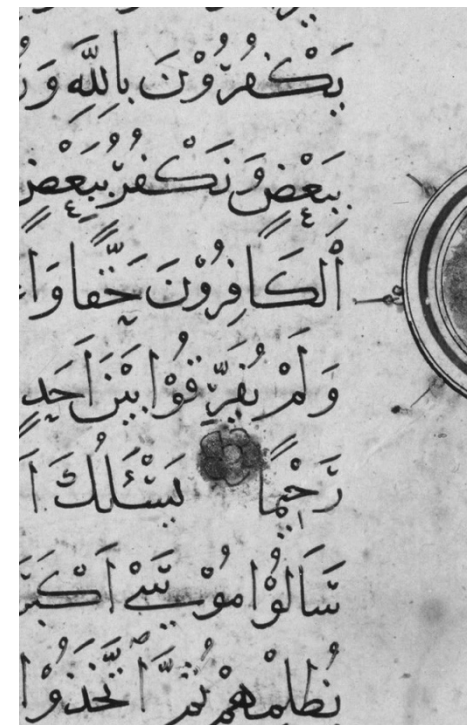 يَكْفُرُوْنَ بِاللَّهِ وَ
بِبَعْضٍ وَنَكْفُرُ بِبَعْضٍ
اَلْكَافِرُوْنَ حَقًّا وَا
وَلَمْ يُفَرِّقُوْا بَيْنَ اَحَدٍ
رَّحِيْمًا يَسْئَلُكَ ا
سَاَلُوْا مُوْسَىٰ اَكْبَرَ
بِظُلْمِهِمْ ثُمَّ اتَّخَذُوْا